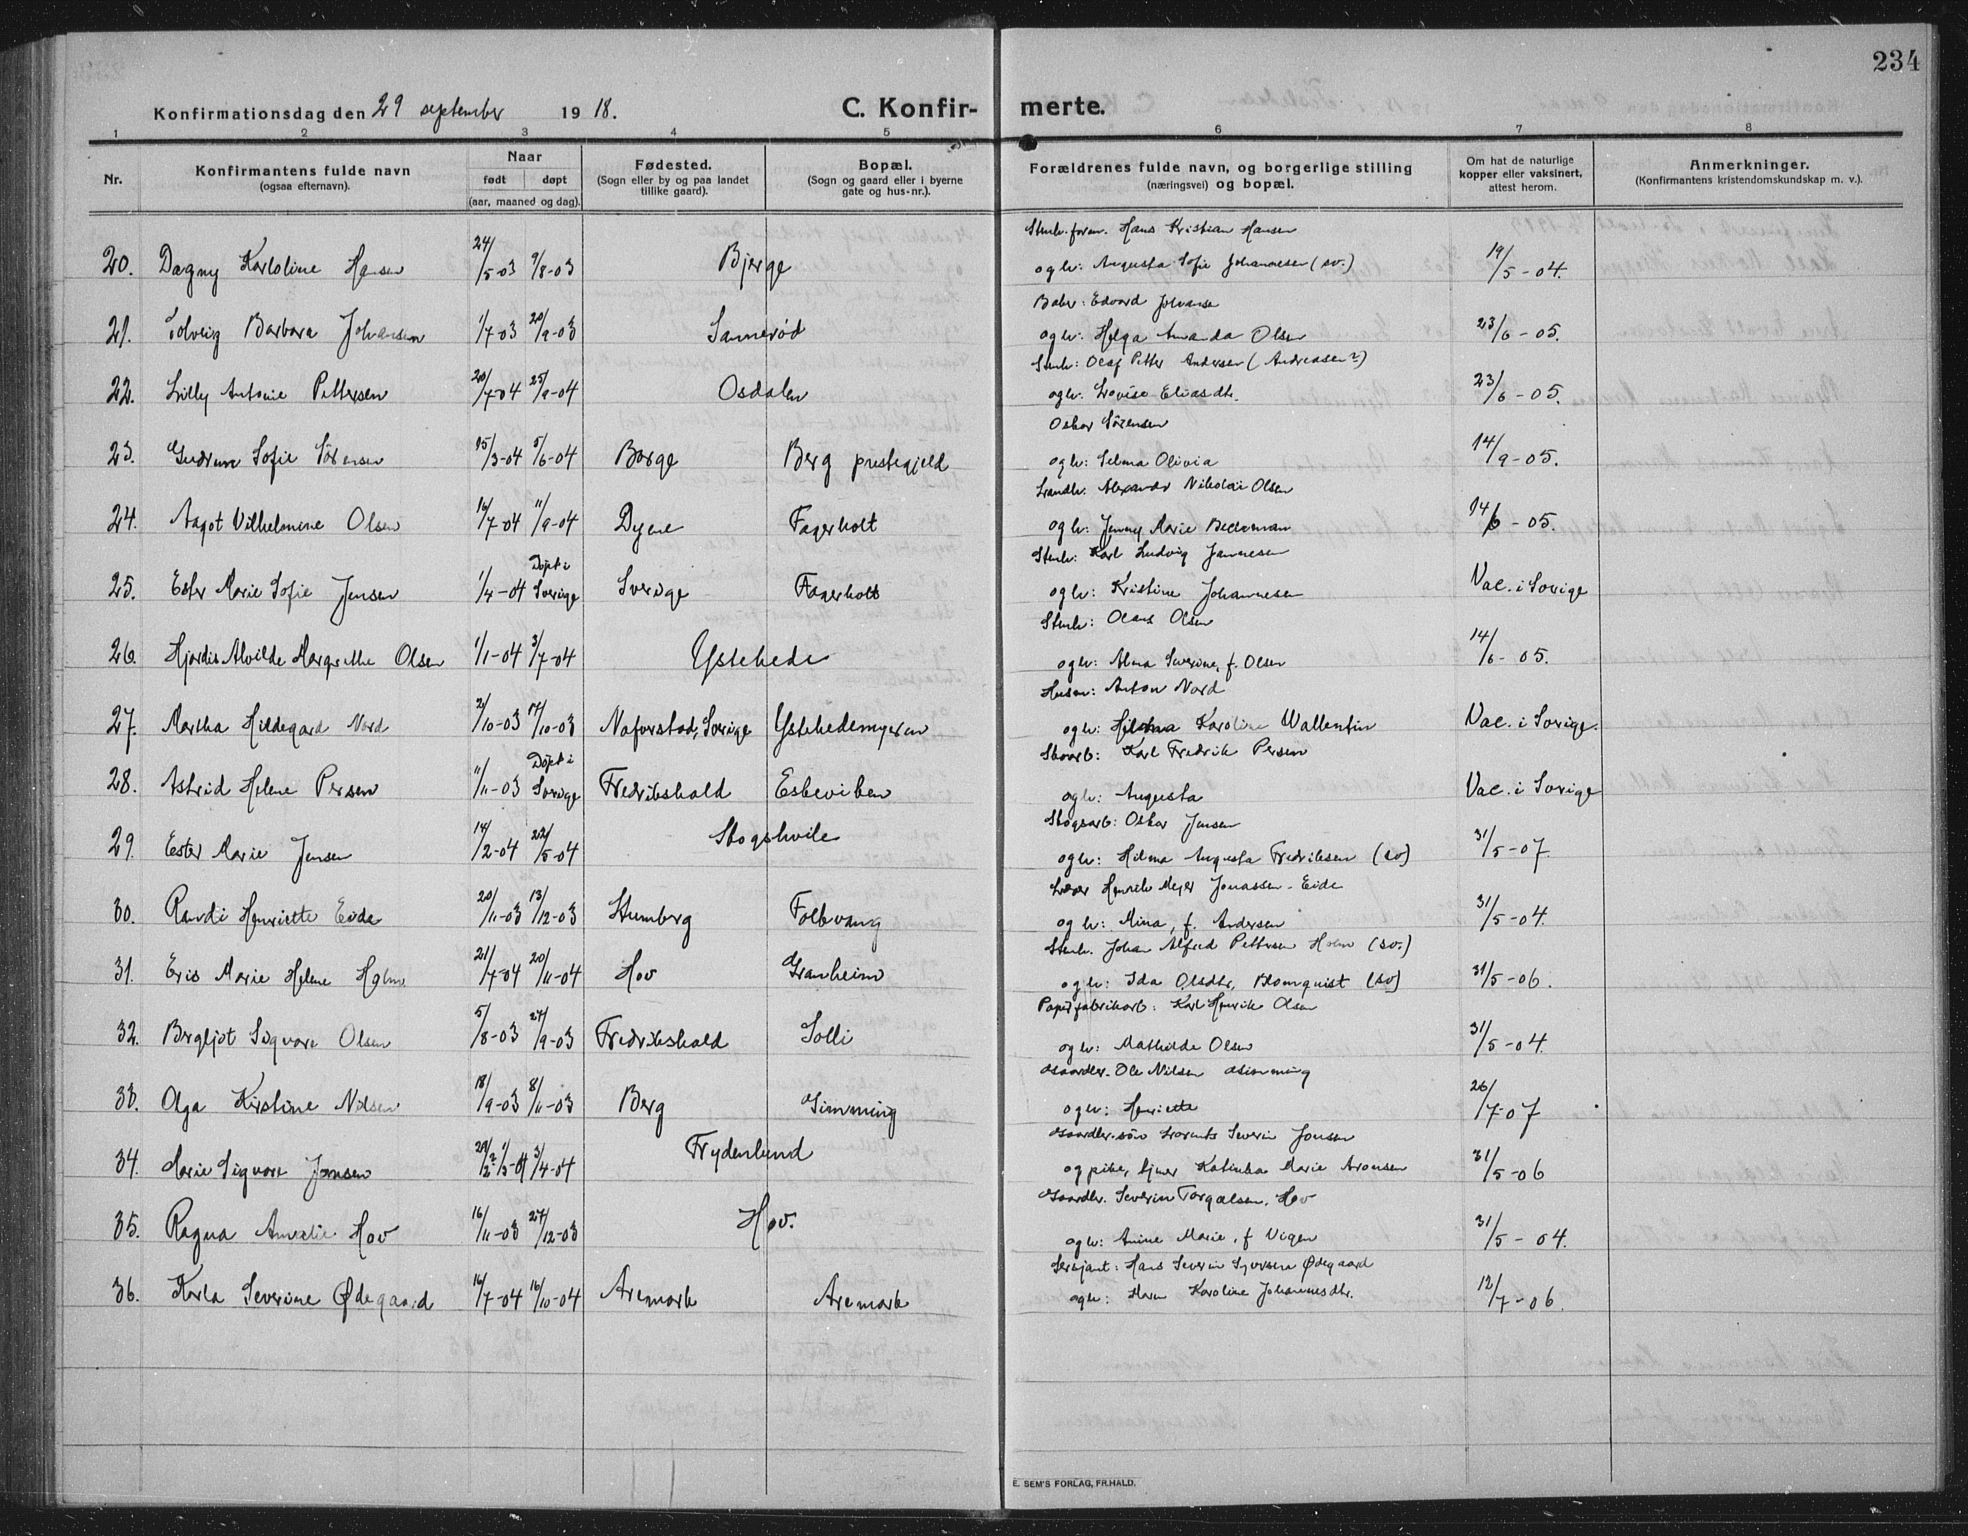 234
Konfirmationsdag den 29 september 1918.
C. Konfirmerte.
1 2 3 4 5 6 7 8
Nr.
Konfirmantens fulde navn
(ogsaa efternavn).
Naar
født døpt
(aar, maaned og dag).
Fødested.
(Sogn eller by og paa landet
tillike gaard).
Bopæl.
(Sogn og gaard eller i byerne
gate og hus-nr.).
Forældrenes fulde navn, og borgerlige stilling
(næringsvei) og bopæl.
Om hat de naturlige
kopper eller vaksinert,
attest herom.
Anmerkninger.
(Konfirmantens kristendomskundskap m. v.).
Stenh. form. Hans Kristian Hansen
20. Dagny Karloline Hansen 24/5-03 9/8-03 Bjerge og hu: Augusta Sofie Johannesen (sv.) 19/5-04.
Edvard Johansen
21. Solveig Barbara Johansen 1/7-03 20/9-03 Sannerød og hu: Helga Amanda Olsen 23/6-05.
Stenh: Olaf Petter Andersen (Andreasen?)
22. Lilly Antonie Pettersen 20/7-04 25/9-04 Osdalen og hu: Lovise Eliasdtr. 23/6-05.
Oskar Sørensen
23. Gudrun Sofie Sørensen 15/3-04 5/6-04 Borge Berg prestegjeld og hu: Selma Olivia 14/9-05.
Alexander Nikolai Olsen
24. Aagot Vilhelmine Olsen 16/7-04 11/9-04 Dyne Fagerholt og hu: Jenny Marie 14/6-05.
Stenh: Karl Ludvig Jannesen
25. Ester Marie Sofie Jensen 1/4-04 Døpt i Sverige Sverige Fagerholt og hu: Kristine Johannesen Vac. i Sverige
Stenh: Olaus Olsen
26. Hjørdis Alvilde Margrethe Olsen 1/1-04 3/7-04 Ystehede og hu: Alma Severine, f. Olsen 14/6-05.
Husm: Anton Nord
27. Martha Hildegard Nord 2/10-03 17/10-03 Naforstad, Sverige Ystehedemyren og hu: Hilma Karoline Wallentin Vac. i Sverige.
Skoarb: Karl Fredrik Persen
28. Astrid Helene Persen 11/11-03 Døpt i Sverige Fredrikshald Eskeviken og hu: Augusta Vac. i Sverige
Skogsarb: Oskar Jensen
29. Ester Marie Jensen 14/2-04 22/5-04 Skogshvile og hu: Hilma Augusta Fredriksen (sv) 31/5-07.
Lærer Henrik Meyer Jonassen-Eide
30. Randi Henriette Eide 20/11-03 13/12-03 Stumberg Folkvang og hu: Mina, f. Andersen 31/5-04.
Stenh. Johan Alfred Pettersen Holm (sv.)
31. Eris Marie Helene Holm 21/7-04 20/11-04 Hov Granheim og hu: Ida Olsdtr. Blomquist (sv) 31/5-06.
Papirfabrikarb: Karl Henrik Olsen
32. Bergljot Sigvara Olsen 5/8-03 27/9-03 Fredrikshald Solli og hu: Mathilde Olsen 31/5-04.
Gaardbr. Ole Nilsen Gimming
33. Olga Kirstine Nilsen 18/9-03 8/11-03 Berg Gimming og hu: Henriette 26/7-07
Gaardbr.søn Lorents Severin Jonsen
34. Marie Sigvara Jonsen 29/2? 1/3-04 3/4-04 Frydenlund og pike, tjener Katinka Marie Aronsen 31/5-06
Gaardbr. Severin Torgalsen, Hov
35. Ragna Amalie Hov 16/11-03 27/12-03 Hov. og hu: Anine Marie, f. Vigen 31/5-04.
Sersjant: Hans Severin Syversen Ødegaard
36. Karla Severine Ødegaard 16/7-04 16/10-04 Aremark Aremark og hu: Maren Karoline Johannesdtr. 12/7-06.
E. SEM'S FORLAG, FR.HALD.